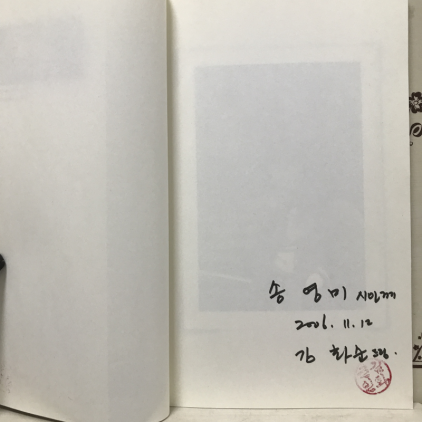 송 영미 시인께
2006. 11. 12
김 화순 드림.